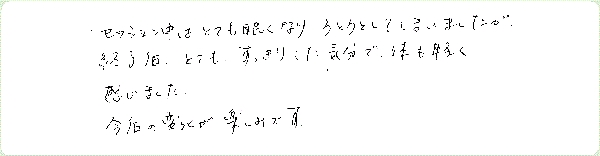 セッション中はとても眠くなり うとうととしてしまいましたが、
終了後、とても すっきりした気分で、体も軽く
感じました。
今後の変化が楽しみです